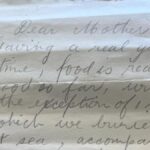 Dear Mother
Having a real g
time food is rea
good so far, wi
the exception of 1
which we burie
at sea, accompa